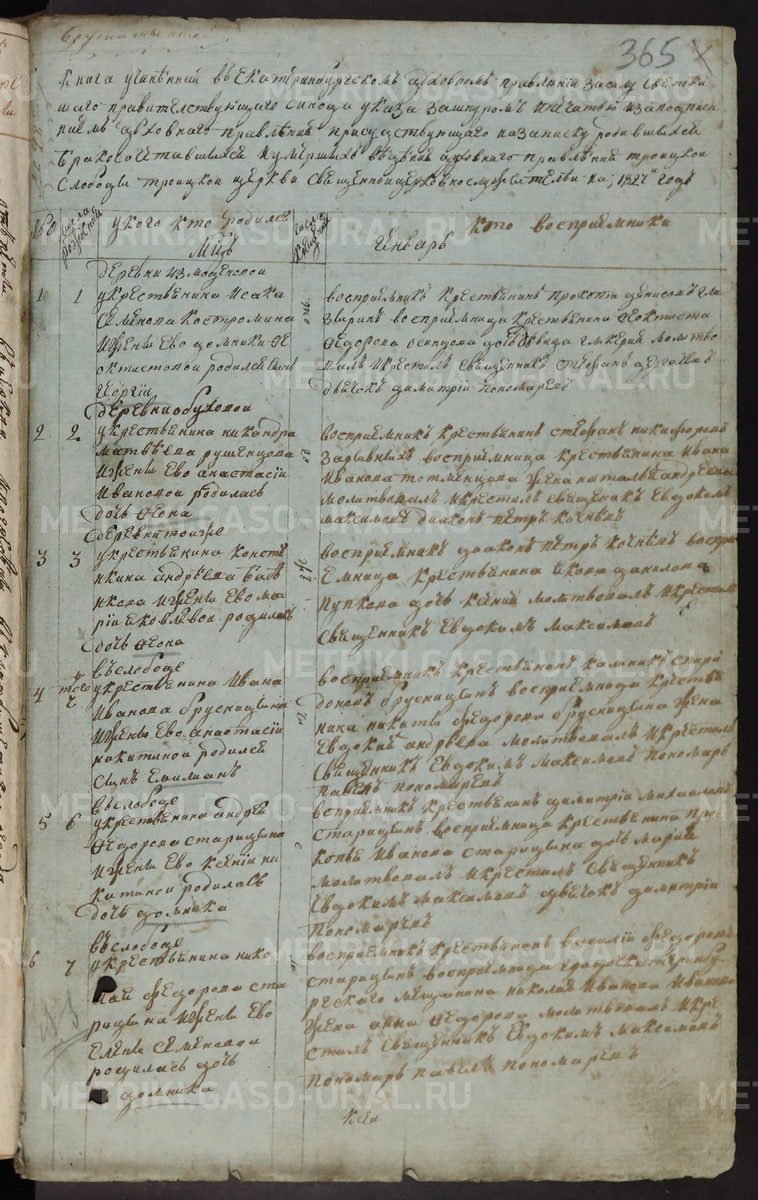 365
Книга учиненная въ Екатеринбургскомъ духовномъ правленіи засилу святей
шаго правителствующаго синода указа зашнуромъ ипечатью изаподписа
ниемъ духовнаго правления присудствующаго назаписку родившихся
бракосочетавшихся иумершихъ ведения духовнаго правления троицкой
Слободы троицкой церкви священноцерковнослужителямъ на 1827й годъ
укого кто родился
число крещения
кто восприемники
Мцъ
Генварь
деревни измоденовой
1 1 укрестьянина исака
Семенова костромина
ижены ево домники фе
октистовой родился сынъ
георгии
восприемникъ крестьянинъ прокопий денисовъ гла
зыринъ восприемница крестьянина феоктиста
Федорова осинцова дочь девица гликерия молитво
валъ икрестилъ священникъ стефанъ
дьячекъ димитрий пономаревъ
деревни обуховой
2 2 укрестьянина никандра
матвеева рушенцова
ижены ево анастасии
Ивановой родилась
дочь феона
восприемникъ крестьянинъ стефанъ никифоровъ
восприемница крестьянина ивана
Иванова жена наталья андреева
молитвовалъ икрестилъ священникъ Евдокимъ
максимовъ диаконъ петръ кочневъ
деревни тоя же
3 3 укрестьянина конста
нкина андреева
ижены ево ма
рии яковлевой родилась
дочь феона
восприемникъ диаконъ петръ кочневъ воспри
емница крестьянина данилова
пупкова дочь ксения молитвовалъ икрестилъ
священникъ Евдокимъ максимовъ
въ слободе
4 того ч укрестьянина ивана
Иванова брусницына
ижены ево анастасии
никитиной родился
сынъ Емилианъ
восприемникъ крестьянинъ спири
доновъ брусницынъ восприемница крестья
нина никиты федорова брусницына жена
Евдокия андреева молитвовалъ икрестилъ
священникъ Евдокимъ максимовъ пономарь
павелъ пономаревъ
въ слободе
5 6 укрестьянина андрея
Федорова старицына
ижены ево ксении ни
китиной родилась
дочь домника
восприемникъ крестьянинъ димитрий михайловъ
старицынъ восприемница крестьянина про
копья иванова старицына дочь мария
молитвовалъ икрестилъ священникъ
Евдокимъ максимовъ дьячекъ димитрий
пономаревъ
въ слободе
6 7 укрестьянина нико
лая федорова ста
рицына ижены ево
Елены семеновой
родилась дочь
домника
восприемникъ крестьянинъ василий федоровъ
старицынъ восприемница града екатеринбу
ргскаго мещанина николая иванова
жена анна федорова молитвовалъ икре
стилъ священникъ Евдокимъ максимовъ
пономарь павелъ пономаревъ
METRIKI.GASO-URAL.RU